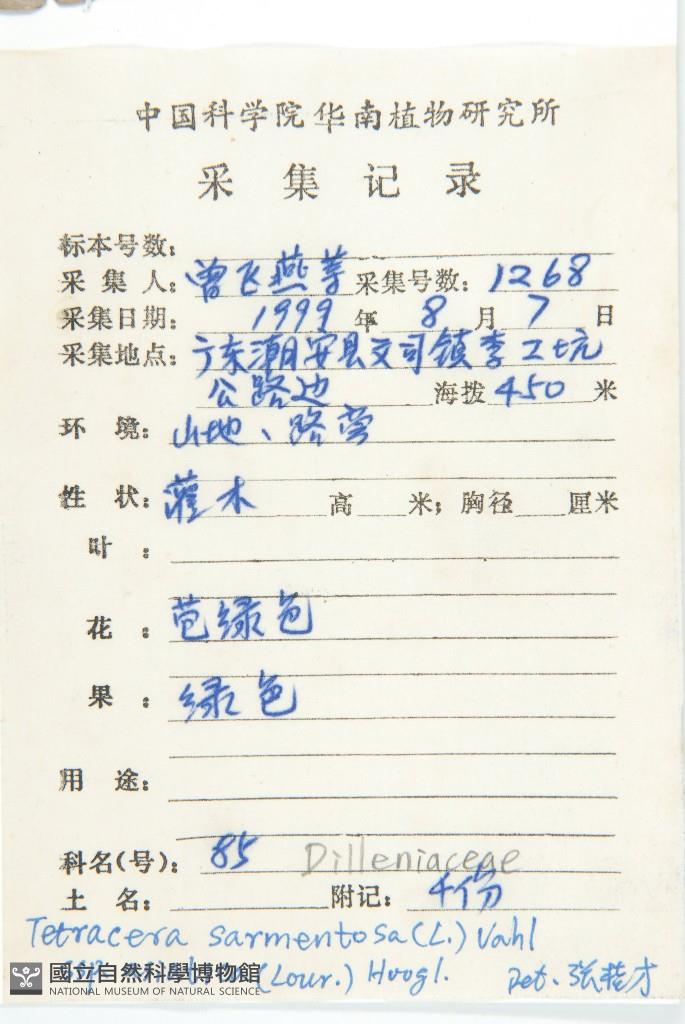 中国科学院华南植物研究所
采集记录
标本号数：
采集人：曾飞燕等 采集号数：1268
采集日期：1999年8月7日
采集地点：广东潮安县文司镇李工坑
公路边 海拨450米
环境：山地、路旁
性状：灌木 高 米；胸径 厘米
叶：
花：苞绿色
果：绿色
用途：
科名(号)：85 Dilleniaceae
土名： 附记：4份
Tetracera sarmentosa (L.) Vahl
(Lour.) Hoogl. Det.
國立自然科學博物館
NATIONAL MUSEUM OF NATURAL SCIENCE